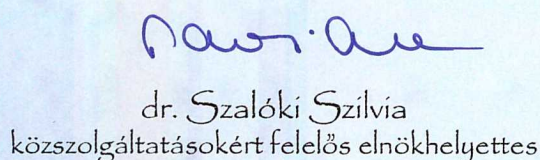 dr. Szalóki Szilvia
közszolgáltatásokért felelős elnökhelyettes